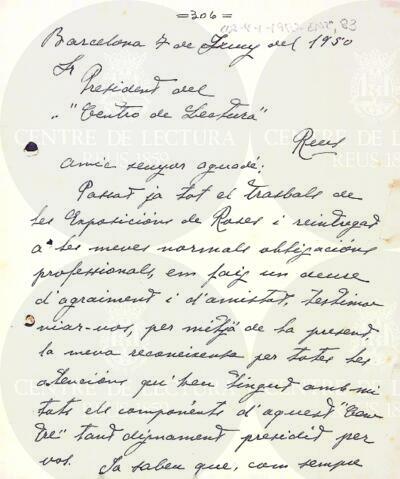 =206=
Barcelona 7 de Juny del 1950
Sr
President del
"Centro de Lectura"
Reus
Amic senyor Aguadé:
Passat ja tot el trasbals de
les Exposicións de Roses i reintegrat
a les meves normals obligacións
professionals, em faig un deure
d'agraiment i d'amistat, testimo
niar-vos, per mitjà de la present
la meva reconeixensa per totes les
atencións qu'heu tingut amb mi
tots els components d'aquest "Cen
tre" tant dignament presidit per
vos. Ja sabeu que, com sempre
CENTRE DE LECTURA
REUS 1859
CENTRE DE LECTURA
REUS 1859